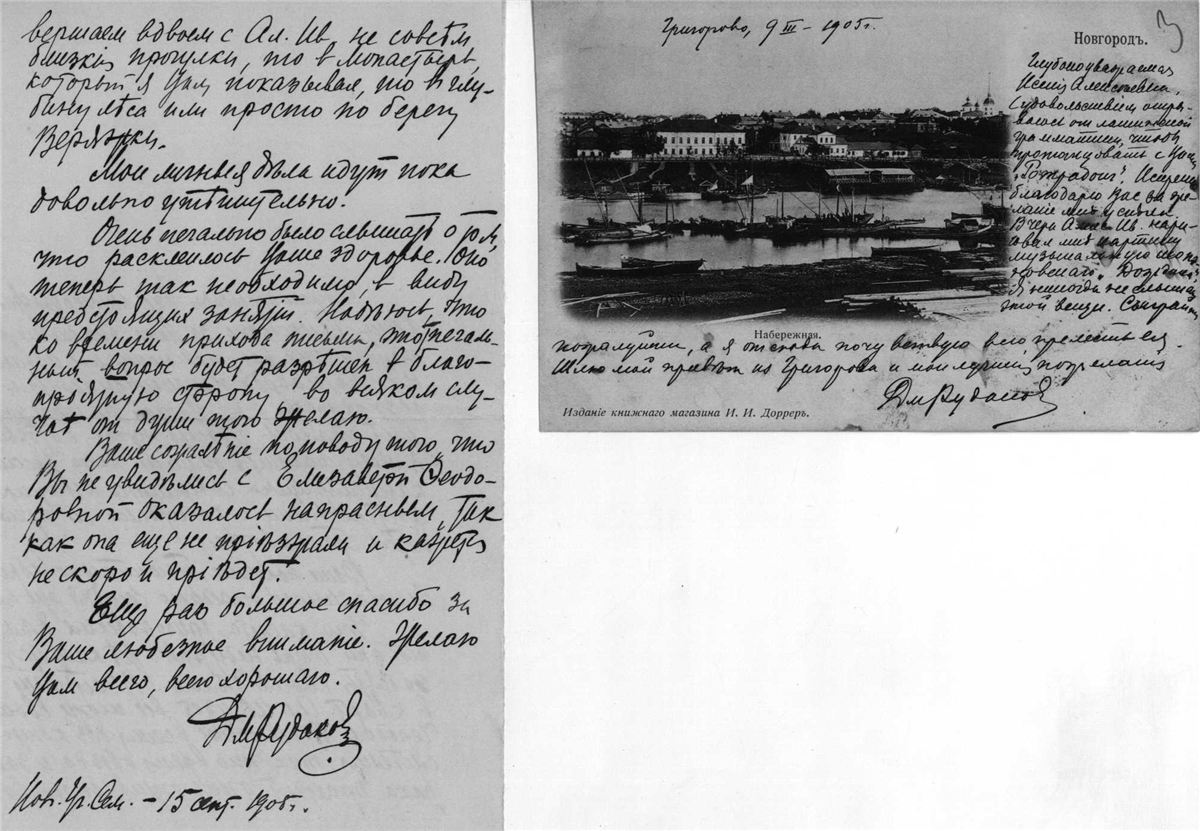 вершаем вдвоем с Ал. Ив. не совсѣм
близкія прогулки, то в монастырь,
который я Вам показывал, то в глу-
бину лѣса или просто по берегу
Веряжки.
Мои личныя дѣла идут пока
довольно утѣшительно.
Очень печально было слышать о том,
что расклеилось Ваше здоровье. Оно
теперь так необходимо, в виду
предстоящих занятій. Надѣюсь, что
ко времени прихода письма, этот печаль-
ный вопрос будет разрѣшен в благо-
пріятную сторону, во всяком слу-
чаѣ от души того желаю.
Ваше сожалѣніе по поводу того, что
Вы не увидѣлись с Елизаветой Ѳеодо-
ровной оказалось напрасным, так
как она еще не пріѣзжала и кажется
не скоро и пріѣдет.
Еще раз большое спасибо за
Ваше любезное вниманіе. Желаю
Вам всего, всего хорошаго.
ДмРудаков
Нов. Уч. Сем. – 15 сент. 1905 г.
Григорово, 9 III – 1905 г.
3
Новгородъ.
Глубокоуважаемая
Ксенія Алексѣевна,
С удовольствіем оторвался
от латинской
грамматики, чтобы
с Вам
Искренно
благодарю Вас за же-
ланіе мнѣ успѣха.
Вчера Алек. Ив. нари-
совал мнѣ картину
музыкальную
Я никогда не слышал
этой вещи. Сыграйте
Набережная.
пожалуйста, а я отсюда почувствую всю прелесть ея.
Шлю мой привѣт из Григорова и мои лучшія пожеланія
ДмРудаков
Изданіе книжнаго магазина И. И. Дорреръ.